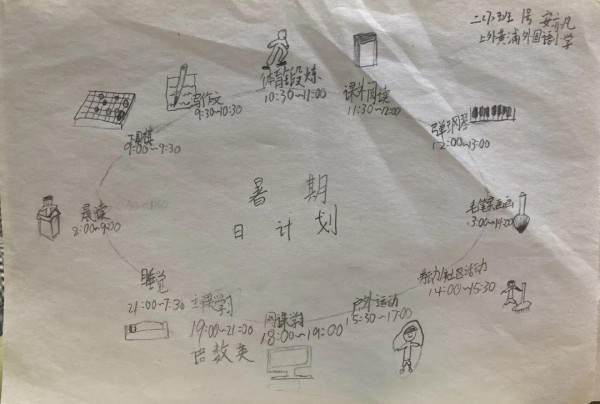 二(7)班 1号 安亦凡
上外黄浦外国语小学
暑期
日计划
体育锻炼
10:30~11:00
课外阅读
11:30~12:00
弹钢琴
12:00~13:00
毛笔画画
13:00~14:00
劳动/社区活动
14:00~15:30
户外运动
15:30~17:00
网课学习
18:00~19:00
主课学习
19:00~21:00
语数英
睡觉
21:00~7:30
晨读
8:00~9:00
下围棋
9:00~9:30
写作文
9:30~10:30